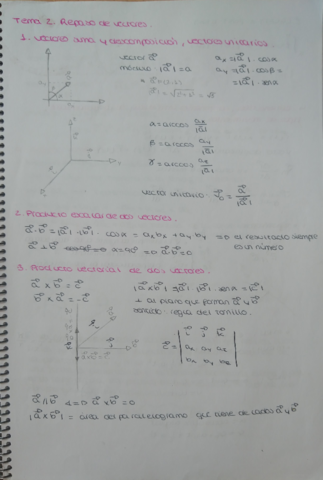 Tema 2. Repaso de vectores.
1. vectores suma y descomposición, vectores unitarios.
vector a⃗
módulo |a⃗| = a
ax = |a⃗| · cos α
ay = |a⃗| · cos β =
= |a⃗| · sen α
α = arccos ax/|a⃗|
β = arccos ay/|a⃗|
γ = arccos az/|a⃗|
vector unitario = a⃗/|a⃗|
2. Producto escalar de dos vectores.
a⃗ · b⃗ = |a⃗| · |b⃗| · cos α = ax bx + ay by ⇒ el resultado siempre
es un número
a⃗ ⊥ b⃗ α = 90º ⇒ a⃗ · b⃗ = 0
3. Producto vectorial de dos vectores.
a⃗ x b⃗ = c⃗
b⃗ x a⃗ = -c⃗
|a⃗ x b⃗| = |a⃗| · |b⃗| · sen α = |c⃗|
⊥ al plano que forman a⃗ y b⃗
sentido: regla del tornillo.
c⃗ = | i⃗ j⃗ k⃗ |
ax ay az
bx by bz
a⃗ // b⃗ α = 0 a⃗ x b⃗ = 0
|a⃗ x b⃗| = área del paralelogramo que tiene de lados a⃗ y b⃗